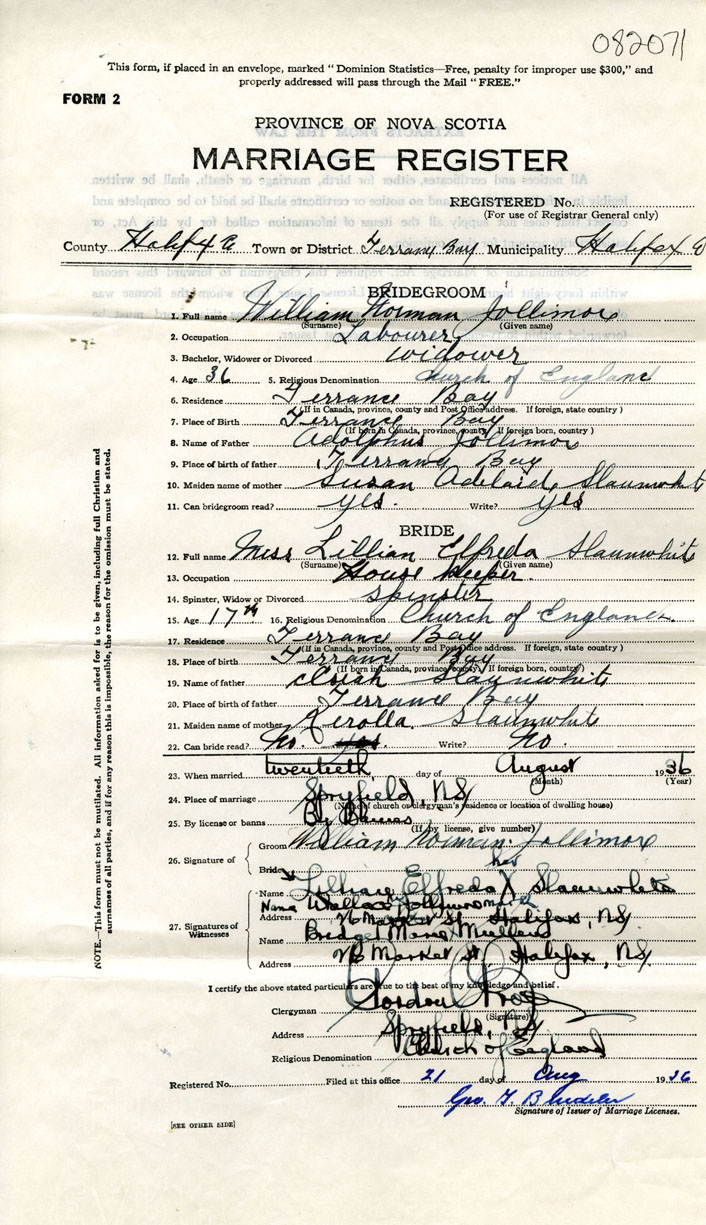 082071
This form, if placed in an envelope, marked "Dominion Statistics—Free, penalty for improper use $300," and
properly addressed will pass through the Mail "FREE."
FORM 2
PROVINCE OF NOVA SCOTIA
MARRIAGE REGISTER
REGISTERED No.
(For use of Registrar General only)
County Halifax E Town or District Terrance Bay Municipality Halifax
BRIDEGROOM
1. Full name William Norman Jollimore
(Surname) (Given name)
2. Occupation Labourer
3. Bachelor, Widower or Divorced widower
4. Age 36 5. Religious Denomination Church of England
6. Residence Terrance Bay
(If in Canada, province, county and Post Office address. If foreign, state country)
7. Place of Birth Terrance Bay
(If born in Canada, province, county, If foreign born, country)
8. Name of Father Adolphus Jollimore
9. Place of birth of father Terrance Bay
10. Maiden name of mother Susan Adelaide Slaunwhite
11. Can bridegroom read? yes. Write? yes
BRIDE
12. Full name Miss Lillian Elfreda Slaunwhite
(Surname) (Given name)
13. Occupation House keeper
14. Spinster, Widow or Divorced spinster
15. Age 17th 16. Religious Denomination Church of England.
17. Residence Terrance Bay
(If in Canada, province, county and Post Office address. If foreign, state country)
18. Place of birth Terrance Bay
(If born in Canada, province, county, If foreign born, country)
19. Name of father Slaunwhite
20. Place of birth of father Terrance Bay
21. Maiden name of mother Slaunwhite
22. Can bride read? No. yes. Write? No.
23. When married twentieth day of August 1936
(Month) (Year)
24. Place of marriage Spryfield, NS
(Name of church or clergyman's residence or location of dwelling house)
25. By license or banns By Banns
(If by license, give number)
26. Signature of Groom William Norman Jollimore
her
Bride Elfreda X Slaunwhite
mark
27. Signatures of Witnesses
Name Wallace Jollimore
Address 76 Market St Halifax, NS
Name Bridget Mullens
Address 76 Market St, Halifax, NS.
I certify the above stated particulars are true to the best of my knowledge and belief.
Clergyman Gordon
(Signature)
Address Spryfield, NS
Religious Denomination Church of England
Registered No. Filed at this office 21 day of Aug 1936
Geo.
Signature of Issuer of Marriage Licenses.
[SEE OTHER SIDE]
NOTE.—This form must not be mutilated. All information asked for is to be given, including full Christian and
surnames of all parties, and if for any reason this is impossible, the reason for the omission must be stated.